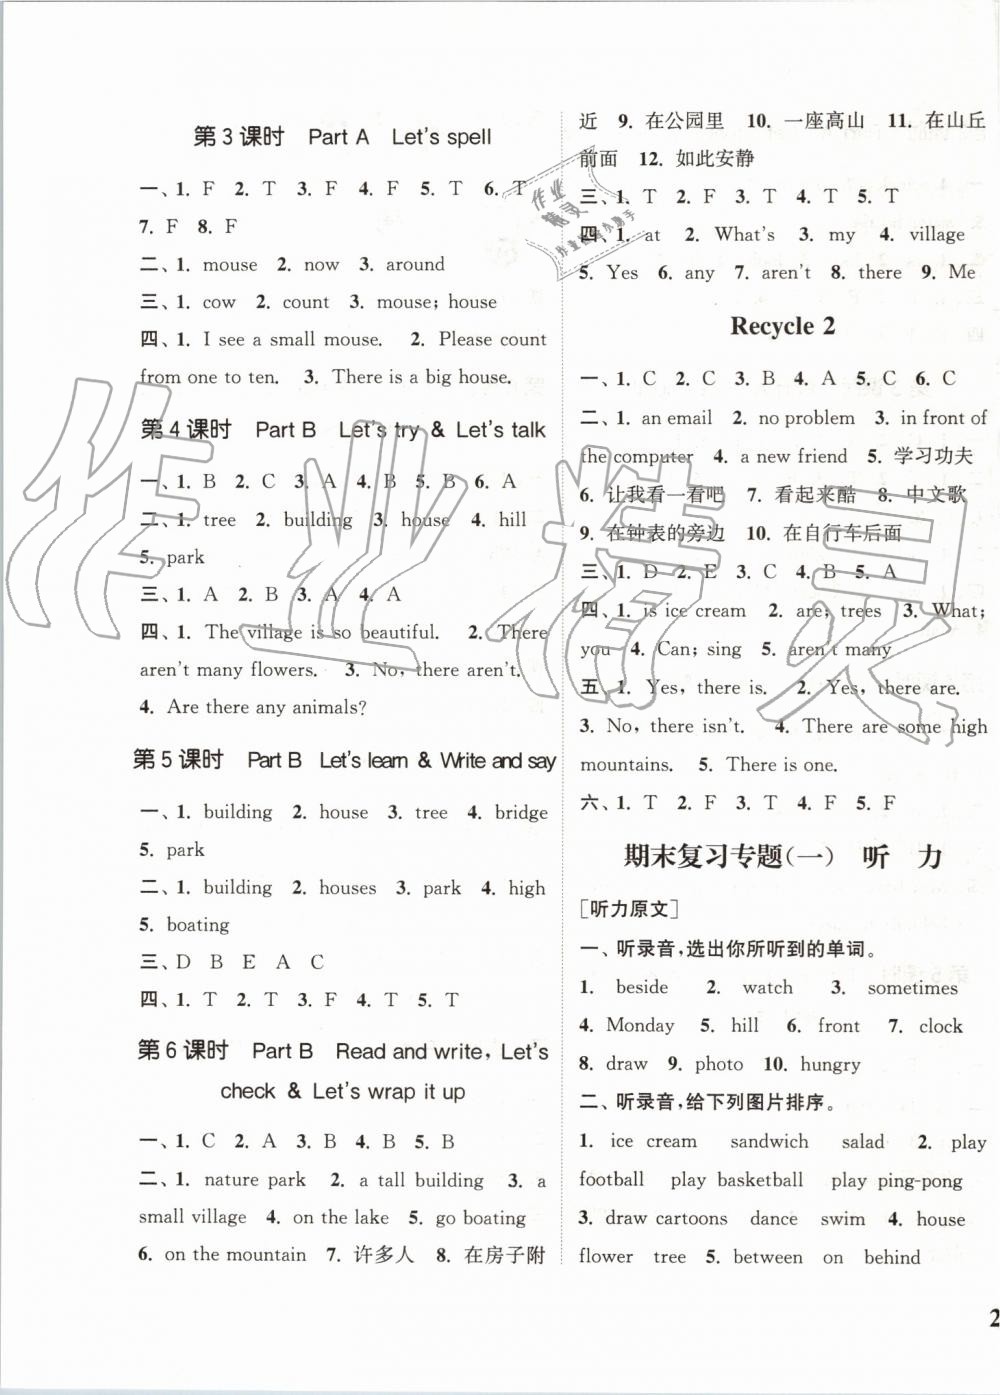 第3课时 Part A Let's spell
一、1. F 2. T 3. F 4. F 5. T 6. T
7. F 8. F
二、1. mouse 2. now 3. around
三、1. cow 2. count 3. mouse; house
四、1. I see a small mouse. 2. Please count
from one to ten. 3. There is a big house.
第4课时 Part B Let's try & Let's talk
一、1. B 2. C 3. A 4. B 5. B 6. A
二、1. tree 2. building 3. house 4. hill
5. park
三、1. A 2. B 3. A 4. A
四、1. The village is so beautiful. 2. There
aren't many flowers. 3. No, there aren't.
4. Are there any animals?
第5课时 Part B Let's learn & Write and say
一、1. building 2. house 3. tree 4. bridge
5. park
二、1. building 2. houses 3. park 4. high
5. boating
三、D B E A C
四、1. T 2. T 3. F 4. T 5. T
第6课时 Part B Read and write, Let's
check & Let's wrap it up
一、1. C 2. A 3. B 4. B 5. B
二、1. nature park 2. a tall building 3. a
small village 4. on the lake 5. go boating
6. on the mountain 7. 许多人 8. 在房子附
近 9. 在公园里 10. 一座高山 11. 在山丘
前面 12. 如此安静
三、1. T 2. F 3. T 4. T 5. T
四、1. at 2. What's 3. my 4. village
5. Yes 6. any 7. aren't 8. there 9. Me
Recycle 2
一、1. C 2. C 3. B 4. A 5. C 6. C
二、1. an email 2. no problem 3. in front of
the computer 4. a new friend 5. 学习功夫
6. 让我看一看吧 7. 看起来酷 8. 中文歌
9. 在钟表的旁边 10. 在自行车后面
三、1. D 2. E 3. C 4. B 5. A
四、1. is ice cream 2. are; trees 3. What;
you 4. Can; sing 5. aren't many
五、1. Yes, there is. 2. Yes, there are.
3. No, there isn't. 4. There are some high
mountains. 5. There is one.
六、1. T 2. F 3. T 4. F 5. F
期末复习专题(一) 听 力
[听力原文]
一、听录音,选出你所听到的单词。
1. beside 2. watch 3. sometimes
4. Monday 5. hill 6. front 7. clock
8. draw 9. photo 10. hungry
二、听录音,给下列图片排序。
1. ice cream sandwich salad 2. play
football play basketball play ping-pong
3. draw cartoons dance swim 4. house
flower tree 5. between on behind
2
作业精灵
作业
精灵